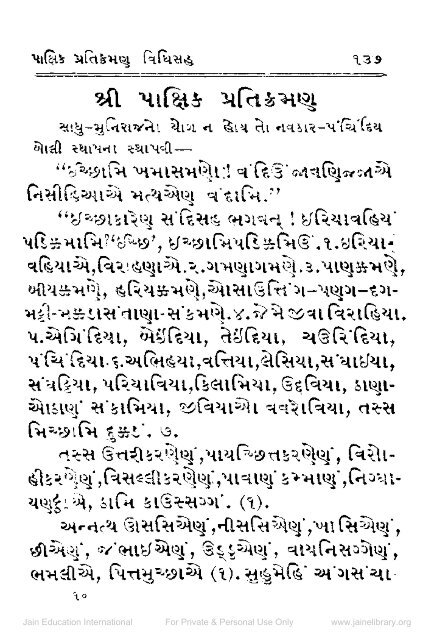 પાક્ષિક પ્રતિક્રમણ વિધિસહ ૧૩૭
શ્રી પાક્ષિક પ્રતિક્રમણ
સાધુ-મુનિરાજનો યોગ ન હોય તો નવકાર-પંચિંદિય
બોલી સ્થાપના સ્થાપવી—
“ઇચ્છામિ ખમાસમણો! વંદિઉં જાવણિજ્જાએ
નિસીહિઆએ મત્થએણ વંદામિ.”
“ઇચ્છાકારેણ સંદિસહ ભગવન્ ! ઇરિયાવહિયં
પડિક્કમામિ”“ઇચ્છં’, ઇચ્છામિપડિક્કમિઉં.૧.ઇરિયા-
વહિયાએ,વિરાહણાએ.૨.ગમણાગમણે.૩.પાણક્કમણે,
બીયક્કમણે, હરિયક્કમણે,ઓસાઉત્તિંગ-પણગ-દગ-
મટ્ટી-મક્કડાસંતાણા-સંકમણે.૪.જેમેજીવાવિરાહિયા.
૫.એગિંદિયા, બેઇંદિયા, તેઇંદિયા, ચઉરિંદિયા,
પંચિંદિયા.૬.અભિહયા,વત્તિયા,લેસિયા,સંઘાઇયા,
સંઘટ્ટિયા, પરિયાવિયા,કિલામિયા, ઉદ્દવિયા, ઠાણા-
ઓઠાણં સંકામિયા, જીવિયાઓ વવરોવિયા, તસ્સ
મિચ્છામિ દુક્કડં. ૭.
તસ્સ ઉત્તરીકરણેણં,પાયચ્છિત્તકરણેણં, વિસો-
હીકરણેણં,વિસલ્લીકરણેણં,પાવાણં કમ્માણં,નિગ્ઘા-
યણટ્ઠાએ, ઠામિ કાઉસ્સગ્ગં. (૧).
અન્નત્થ ઊસસિએણં,નીસસિએણં,ખાસિએણં,
છીએણં, જંભાઇએણં, ઉડ્ડુએણં, વાયનિસગ્ગેણં,
ભમલીએ, પિત્તમુચ્છાએ (૧). સુહુમેહિં અંગસંચા-
૧૦
Jain Education International For Private & Personal Use Only www.jainelibrary.org